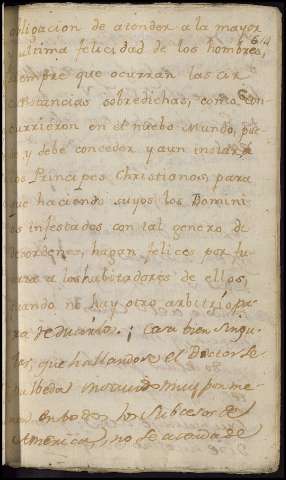 obligacion de atender a la mayor
ultima felicidad de los hombres,
siempre que ocurran las cir
cunstancias sobredichas, como con
currieron en el nuebo Mundo, pue
de y debe conceder y aun instar a
los Principes Christianos, para
que haciendo suyos los Domini
os infestados con tal genero de
desordenes, hagan felices por fu
erza a los habitadores de ellos,
quando no hay otro arbitrio pa
ra
Cosa bien singu
lar, que hallandose el Doctor Se
pulbeda instruido muy por me
en todos los Subcesos de
America, no se acorda de